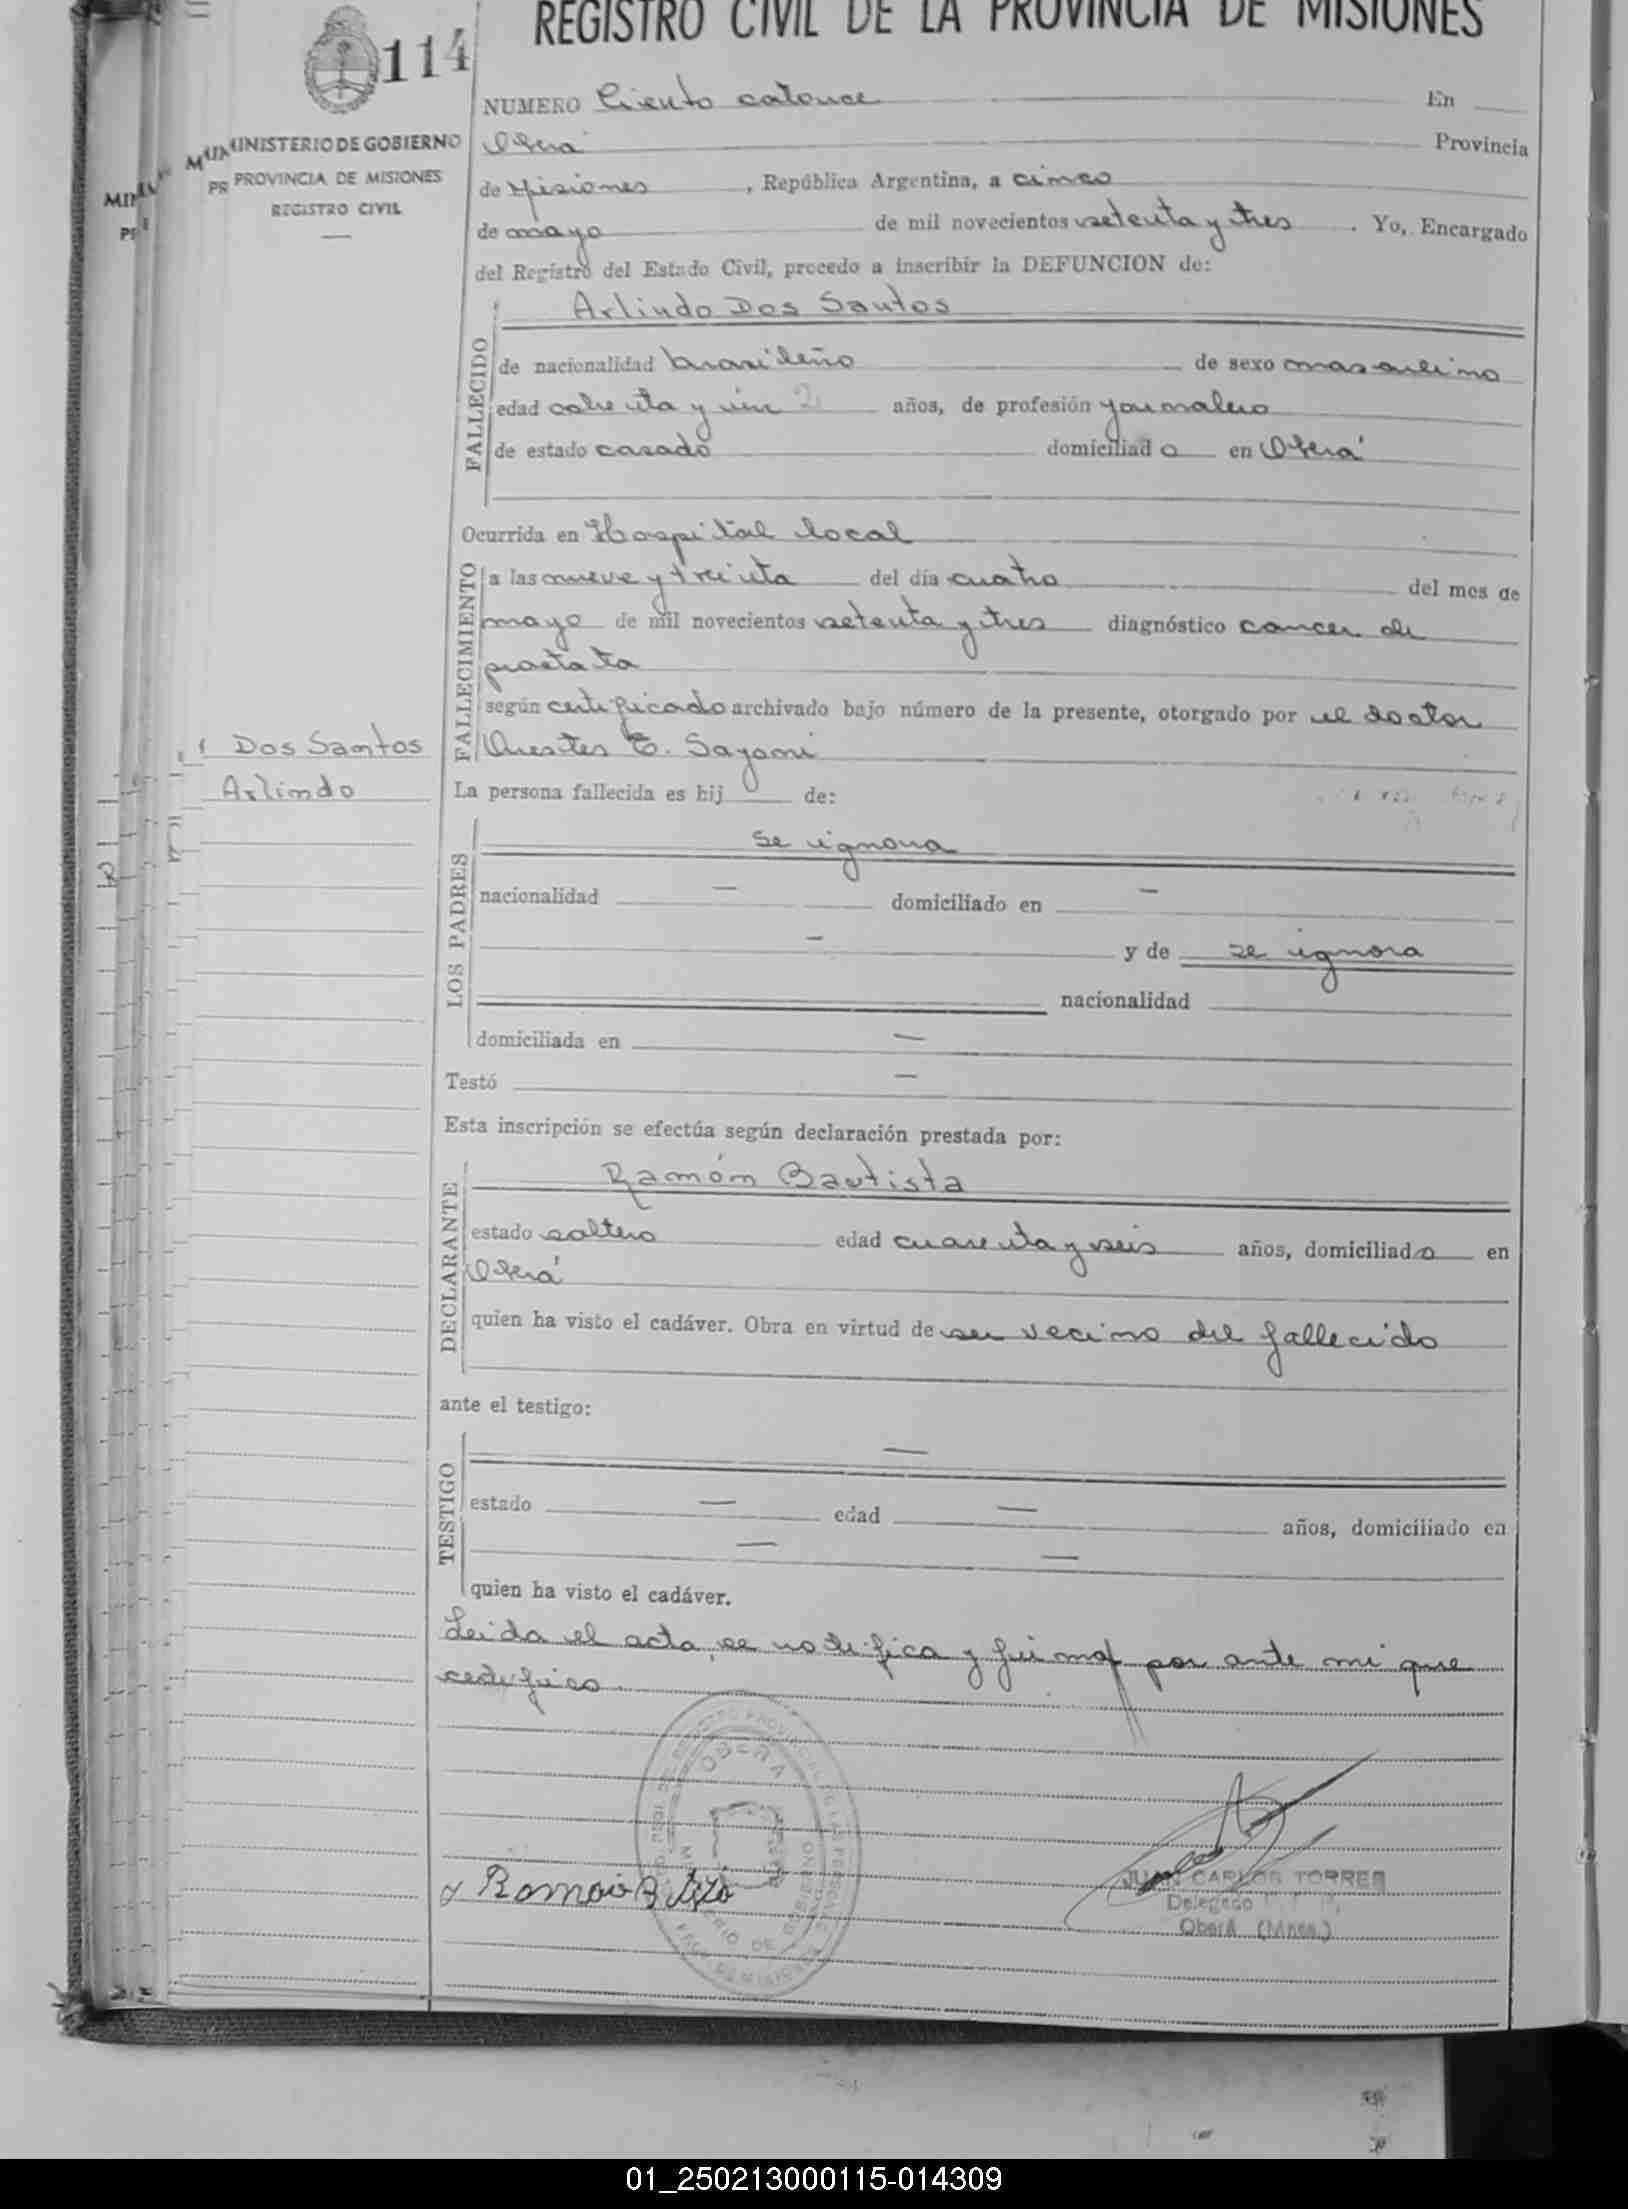 REGISTRO CIVIL DE LA PROVINCIA DE MISIONES
114
NUMERO Ciento catorce En
MINISTERIO DE GOBIERNO
PROVINCIA DE MISIONES
REGISTRO CIVIL
Oberá Provincia
de Misiones, República Argentina, a cinco
de mayo de mil novecientos setenta y tres. Yo, Encargado
del Registro del Estado Civil, procedo a inscribir la DEFUNCION de:
FALLECIDO
Arlindo Dos Santos
de nacionalidad brasileño de sexo masculino
edad años, de profesión jornalero
de estado casado domiciliado en Oberá
Ocurrida en Hospital local
FALLECIMIENTO
a las nueve y treinta del día cuatro del mes de
mayo de mil novecientos setenta y tres diagnóstico cancer de
prostata
según certificado archivado bajo número de la presente, otorgado por el doctor
Orestes E.
Dos Santos
Arlindo
La persona fallecida es hijo de:
LOS PADRES
se ignora
nacionalidad — domiciliado en —
— y de se ignora
nacionalidad
domiciliada en —
Testó —
Esta inscripción se efectúa según declaración prestada por:
DECLARANTE
Ramón Bautista
estado soltero edad cuarenta y seis años, domiciliado en
Oberá
quien ha visto el cadáver. Obra en virtud de ser vecino del fallecido
ante el testigo:
TESTIGO
—
estado — edad — años, domiciliado en
— —
quien ha visto el cadáver.
Leida el acta, se notifica y firma por ante mi que
certifico.
OBERA
JUAN CARLOS TORRES
Delegado
Oberá (Mnes.)
01_250213000115-014309